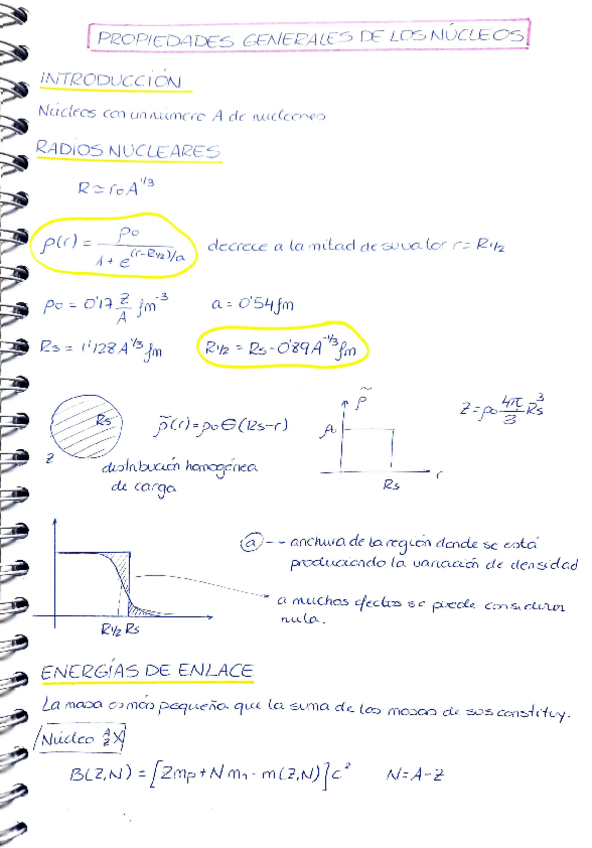 PROPIEDADES GENERALES DE LOS NÚCLEOS
INTRODUCCIÓN
Núcleos con un número A de nucleones
RADIOS NUCLEARES
R ≃ r₀A^1/3
ρ(r) = ρ₀ / (1 + e^(r-R1/2)/a) decrece a la mitad de su valor r = R1/2
ρ₀ = 0'17 Z/A fm^-3 a = 0'54 fm
Rs = 1'128 A^1/3 fm R1/2 = Rs - 0'89 A^-1/3 fm
Rs
Z
ρ̃(r) = ρ₀ Θ (Rs-r)
distribución homogénea
de carga
ρ̃
ρ₀
Rs
r
Z = ρ₀ 4π/3 Rs³
R1/2 Rs
a -- anchura de la región donde se está
produciendo la variación de densidad
a muchos efectos se puede considerar
nula.
ENERGÍAS DE ENLACE
La masa es más pequeña que la suma de las masas de sus constituy.
Núcleo ᴬ_Z X
B(Z,N) = [Zmp + Nmn - m(Z,N)]c² N = A-Z